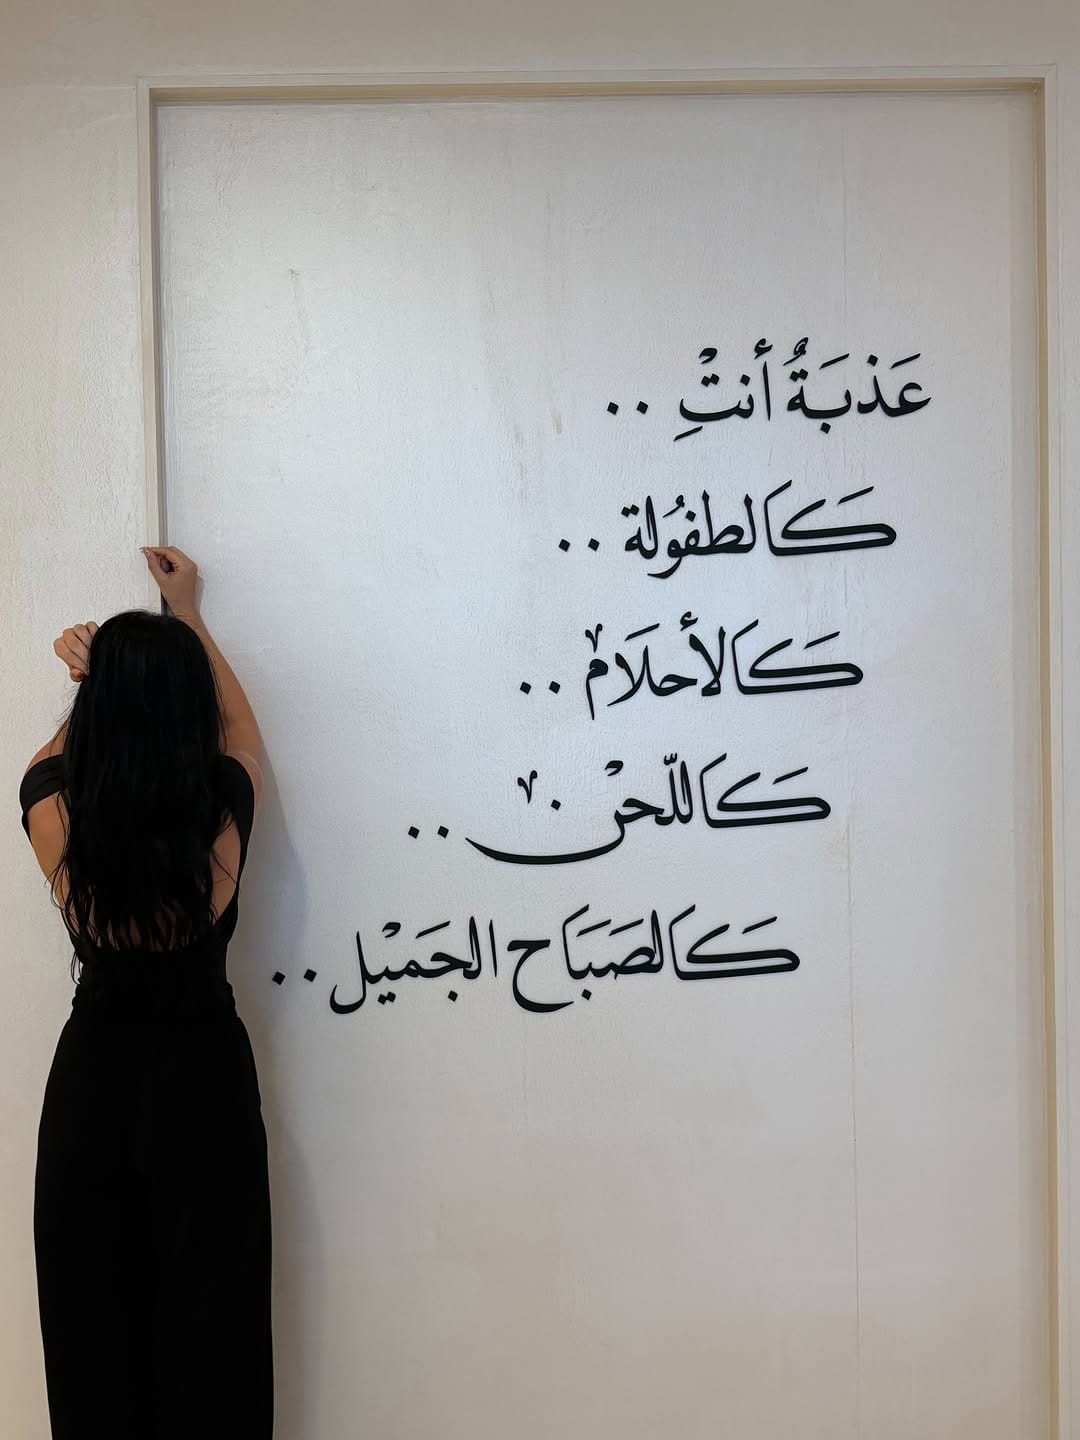 عَذبَةٌ أنتِْ ..
كَالطفُولة ..
كَالأحلَام ..
كَاللّحْن ..
كَالصَبَاح الجَميْل ..